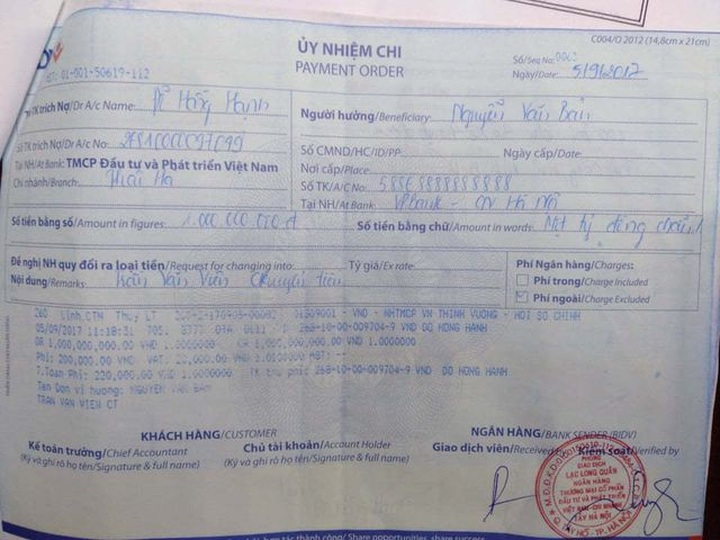 C004/Q 2012 (14,8cm x 21cm)
ỦY NHIỆM CHI
PAYMENT ORDER
Số/Seq No:
Ngày/Date: 5/9/2017
01-001-50619-112
TK trích Nợ/Dr A/c Name: Đỗ Hồng Hạnh
Số TK trích Nợ/Dr A/c No:
Tại NH/At Bank: TMCP Đầu tư và Phát triển Việt Nam
Chi nhánh/Branch: Thái Hà
Người hưởng/Beneficiary: Nguyễn Văn Bản
Số CMND/HC/ID/PP: Ngày cấp/Date:
Nơi cấp/Place
Số TK/A/C No:
Tại NH/At Bank: VPbank - CN Hà Nội
Số tiền bằng số/Amount in figures: 1.000.000.000đ
Số tiền bằng chữ/Amount in words: Một tỷ đồng chẵn
Đề nghị NH quy đổi ra loại tiền/Request for changing into: Tỷ giá/Ex rate:
Nội dung/Remarks: Trần Văn Viên chuyển tiền
Phí Ngân hàng/Charges:
Phí trong/Charge Included
Phí ngoài/Charge Excluded
260 linh.CTM Thuy LT 01309001 - VND - NHTMCP VN THINH VUONG - HOI SO CHINH
05/09/2017 11:18:31 705. 268-10-00-009704-9 VND DO HONG HANH
DR 1,000,000,000.00 VND 1.0000000 CR 1,000,000,000.00 VND 1.0000000
Phi: 200,000.00 VND VAT: 20,000.00 VND
T.Toan Phi: 220,000.00 VND 1.0000000 TK thu phi: 268-10-00-009704-9 VND DO HONG HANH
Ten Don vi huong: NGUYEN VAN BAN
TRAN VAN VIEN CT
KHÁCH HÀNG/CUSTOMER
NGÂN HÀNG/BANK SENDER (BIDV)
Kế toán trưởng/Chief Accountant
Chủ tài khoản/Account Holder
Giao dịch viên/Received by
Kiểm soát/Verified by
(Ký và ghi rõ họ tên/Signature & full name)
(Ký và ghi rõ họ tên/Signature & full name)
PHÒNG
GIAO DỊCH
LẠC LONG QUÂN
NGÂN HÀNG
THƯƠNG MẠI CỔ PHẦN
ĐẦU TƯ VÀ PHÁT TRIỂN
VIỆT NAM-CHI NHÁNH
TÂY HÀ NỘI
Q.TÂY HỒ - TP. HÀ NỘI
hợp tác thành công/ Share opportunities, share success